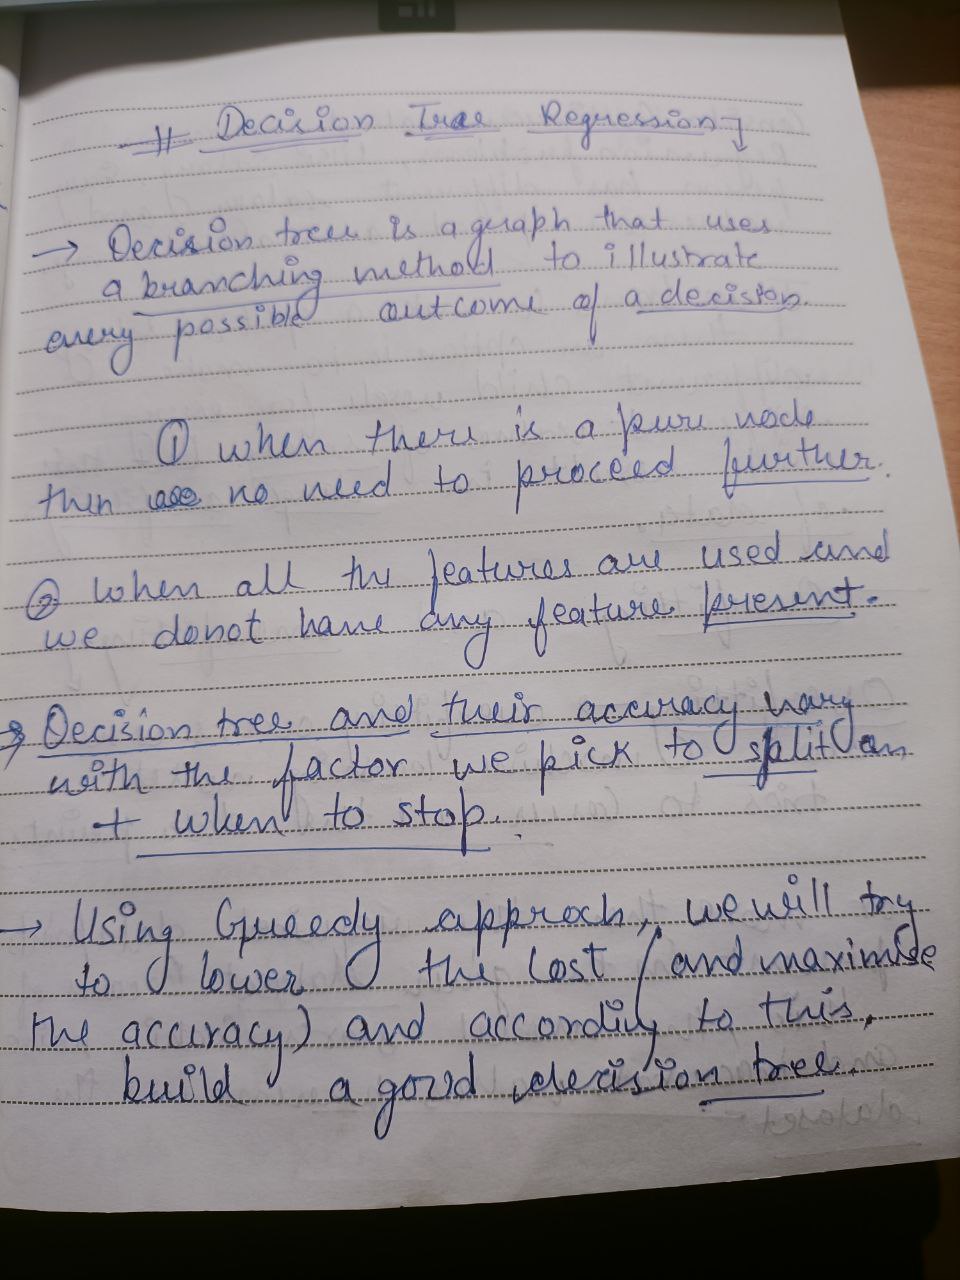 # Decision Tree Regression
→ Decision tree is a graph that uses
a branching method to illustrate
every possible outcome of a decision.
① when there is a pure node
then no need to proceed further.
② When all the features are used and
we donot have any feature present.
→ Decision tree and their accuracy vary
with the factor we pick to split on
+ when to stop.
→ Using Greedy approch, we will try
to lower the cost (and maximise
the accuracy) and accordiy to this,
build a good decision tree.